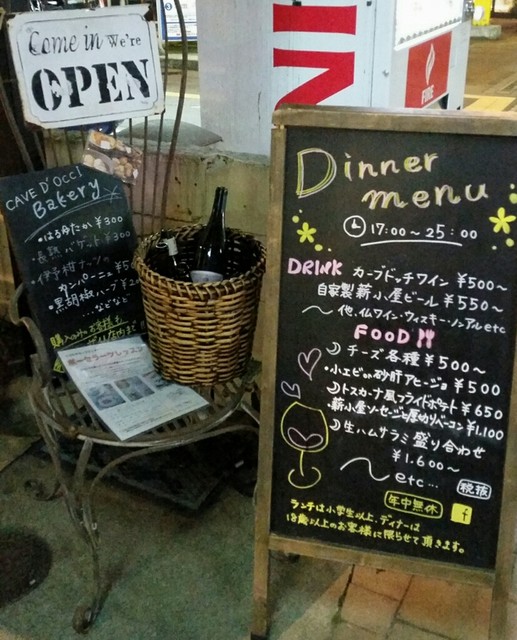 Come in We're
OPEN
CAVE D'OCCI
Bakery
・はるゆたか ¥300
・長熟バゲット ¥300
・伊予柑ナッツの
カンパーニュ
・黒胡椒ハーブ
…などなど
FIRE
Dinner
menu
17:00～25:00
DRINK カーブドッチワイン ¥500～
自家製薪小屋ビール ¥550～
～他、仏ワイン・ウィスキー・ノンアルetc
FOOD!!
チーズ各種 ¥500～
・小エビor砂肝アヒージョ ¥500
・トスカーナ風フライドポテト ¥650
・薪小屋ソーセージと厚切りベーコン ¥1,100
生ハムサラミ盛り合わせ
¥1,600～
～etc…
税抜
年中無休 f
ランチは小学生以上、ディナーは
18歳以上のお客様に限らせて頂きます。